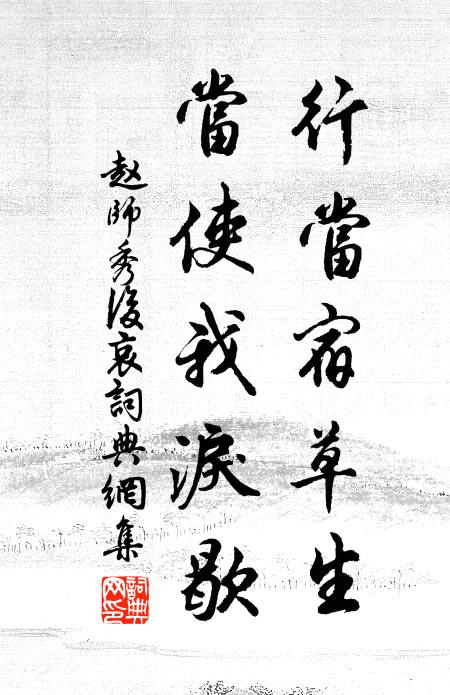 行當宿草生
當使我淚歇
赵師秀後哀詞典網集
詞典網印